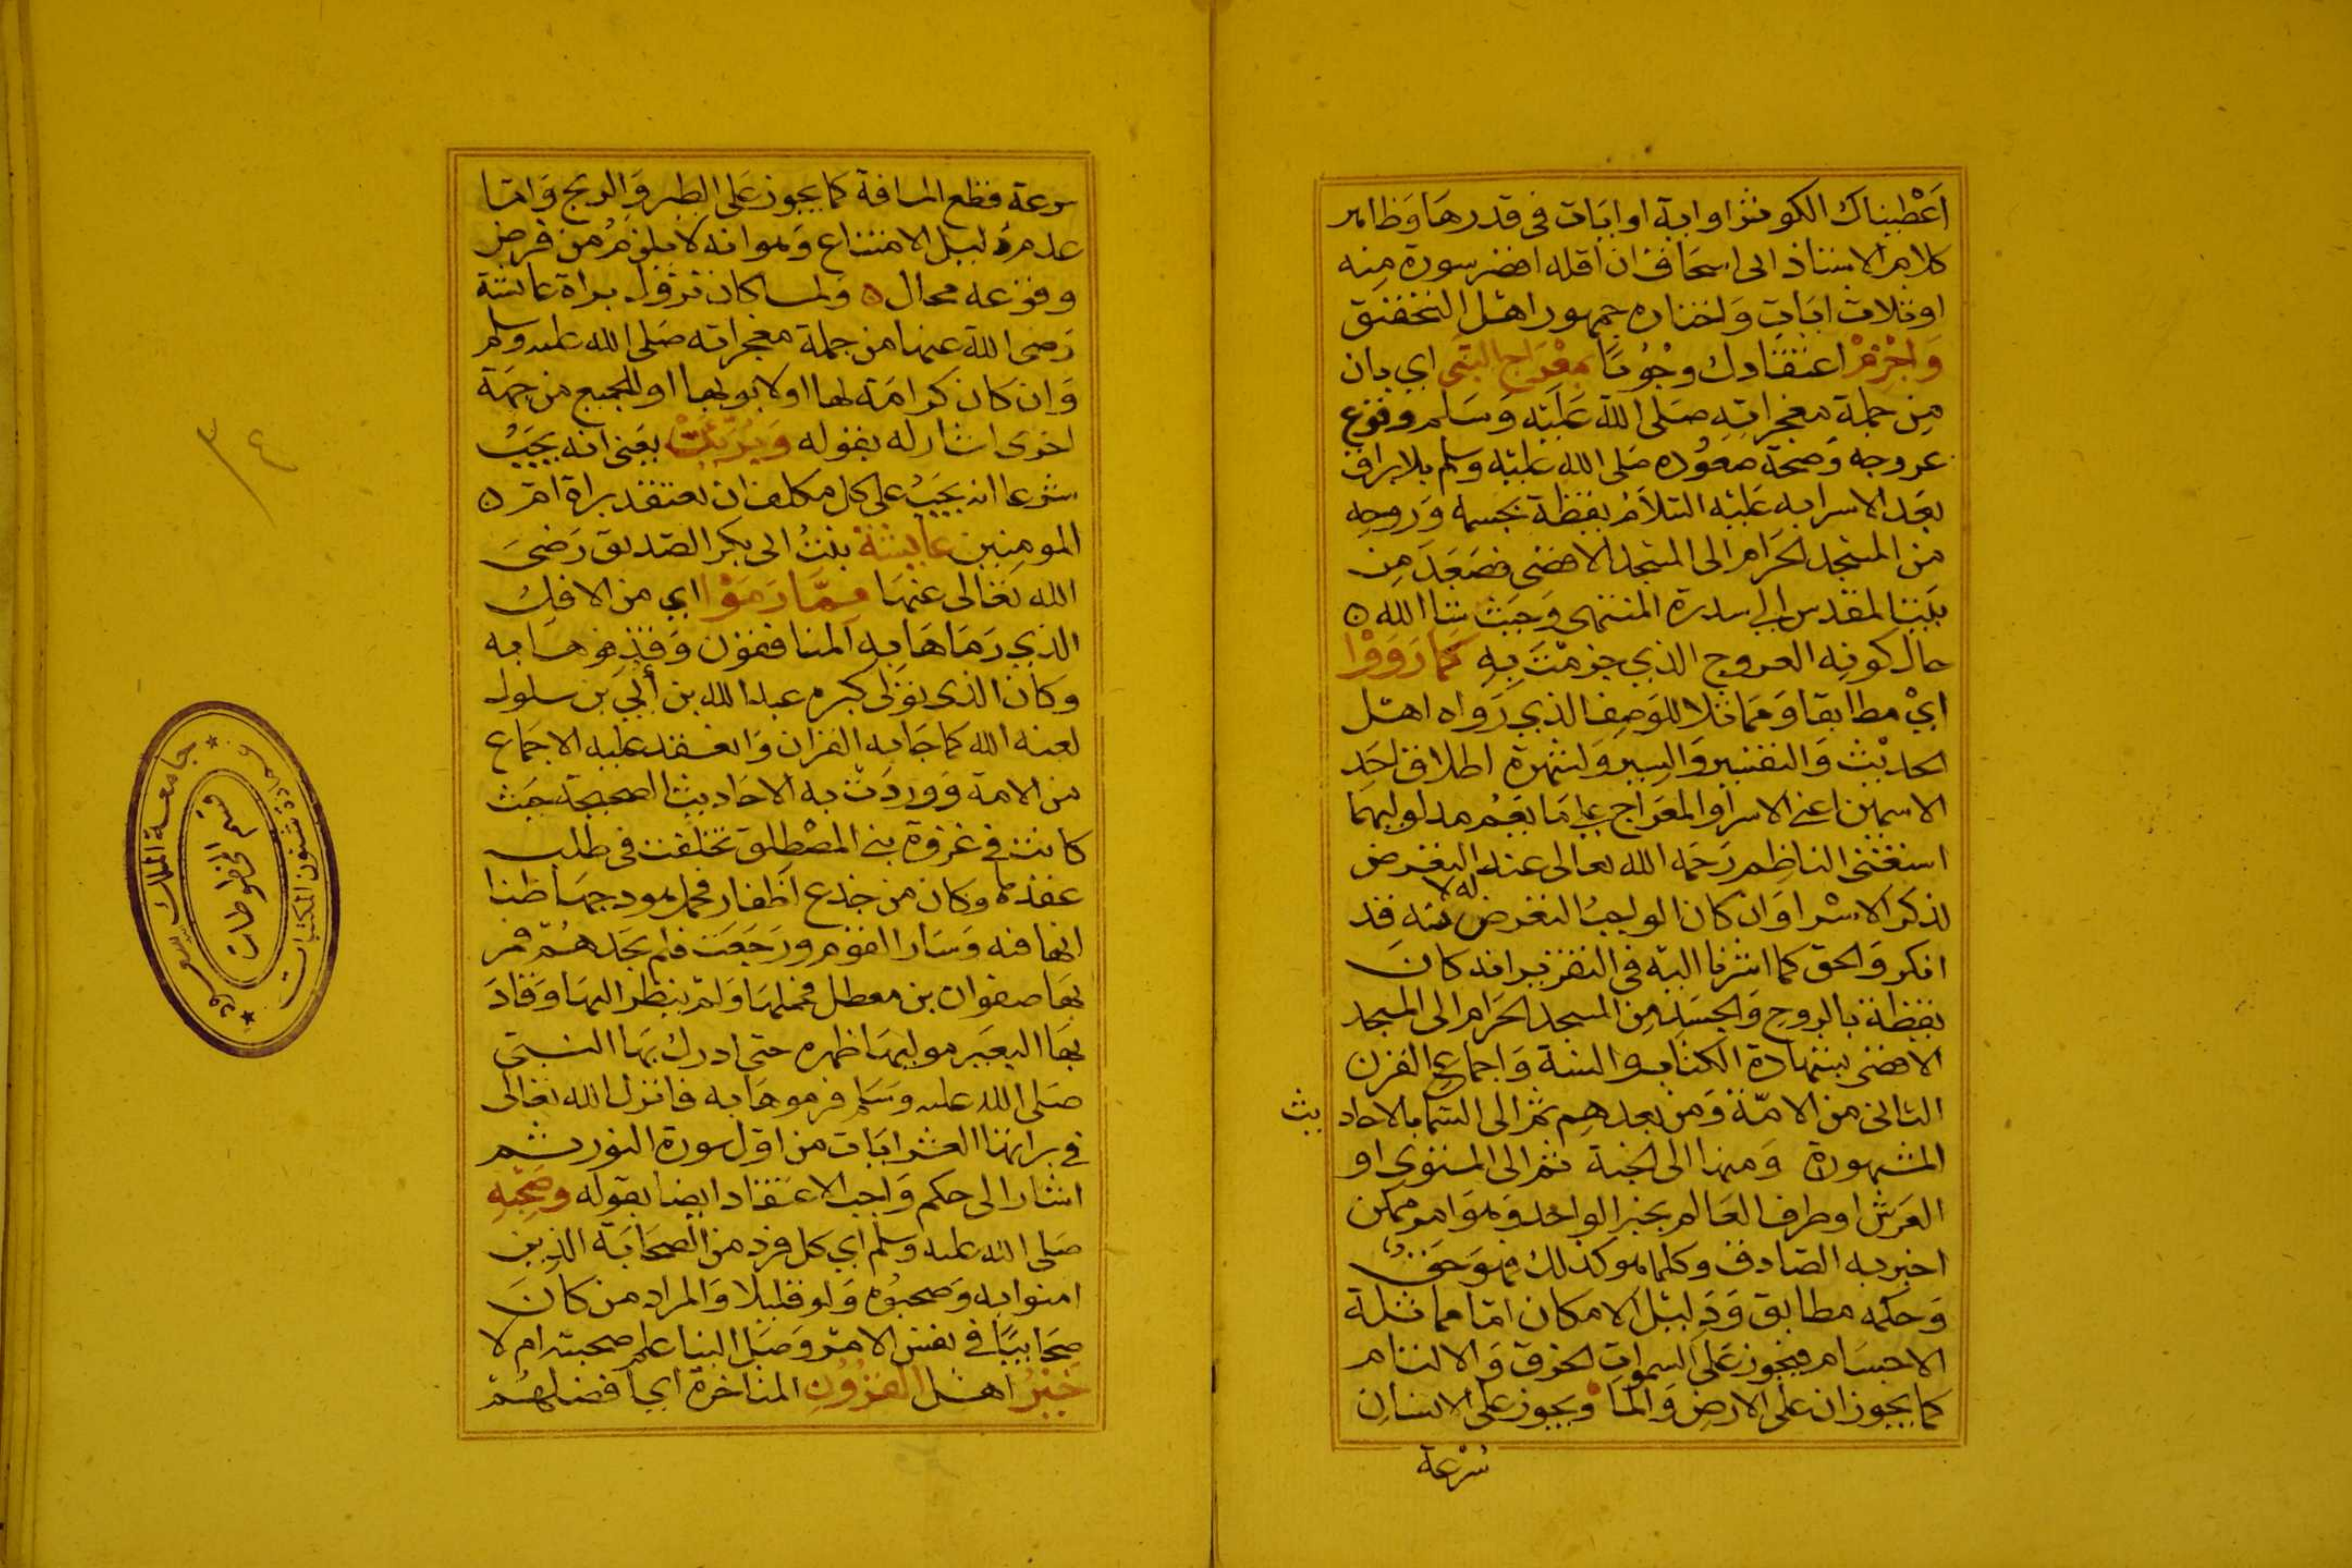 اعطيناك الكوثر او اية او ايات فى قدرها وظاهر
كلام الاستاذ ابى اسحاق ان اقله اقصر سورة منه
او ثلاث ايات واختاره جمهور اهل التحقيق
وَاجْزِمْ اعتقادك وجُوبًا بمعْرَاج النبى اي بان
من جملة معجزاته صلى الله عليه وسلم وقوع
عروجه وصحة صعوده صلى الله عليه وسلم بالبراق
بعد الاسرا به عليه السلام يقظة بجسمه وروحه
من المسجد الحرام الى المسجد الاقصى فصعد من
بيت المقدس الى سدرة المنتهى وحيث شا الله ه
حال كونه العروج الذي جزمت به كَمَا رَوَوْا
ايْ مطابقا ومماثلا للوصف الذي رواه اهل
الحديث والتفسير والسير ولشهرة اطلاق احد
الاسمين اعني الاسرا والمعراج على ما يعم مدلوليهما
استغنى الناظم رحمه الله تعالى عنه التعرض
لذكر الاسرا وان كان الواجب التعرض له لانه قد
انكر والحق كما اشرنا اليه في التقرير انه كان
يقظة بالروح والجسد من المسجد الحرام الى المسجد
الاقصى بشهادة الكتاب والسنة واجماع القرن
الثانى من الامة ومن بعدهم ثم الى السما بالاحاد يث
المشهورة ومنها الى الجنة ثم الى المستوى او
العرش او طرف العالم بخبر الواحد وهو امر ممكن
اخبر به الصادق وكلما هو كذلك فهو حق
وحكمه مطابق ودليل الامكان اما مماثلة
الاجسام فيجوز على السموات الخرق والالتئام
كما يجوز ان على الارض والما ويجوز على الانسان
سُرعة
سرعة قطع المسافة كما يجوز على الطير والريح واما
عدم دليل الامتناع وهو انه لا يلزم من فرض
وقوعه محال ه ولما كان نزول براة عايشة
رضى الله عنها من جملة معجزاته صلى الله عليه وسلم
وان كان كرامة لها او لابويها او للجميع من جهة
اخرى اشار له بقوله وَبَرِّئَنْ يعنى انه يجب
شرعا انه يجب على كل مكلف ان يعتقد براة ام ه
المومنين عايشة بنت ابى بكر الصديق رضى
الله تعالى عنها مِمَّا رَمَوْا اي من الافك
الذي رماها به المنافقون وقذفوها به
وكان الذى تولى كبره عبد الله بن أبي بن سلول
لعنه الله كما جا به القران وانعقد عليه الاجماع
من الامة ووردت به الاحاديث الصحيحة حيث
كانت في غزوة بني المصْطلق تخلفت فى طلب
عقدها وكان من جذع اظفار فحمل هودجها ظنا
انها فيه وسار القوم ورجعت فلم تجدهم فمر
بها صفوان بن معطل فحملها ولم ينظر اليها وقاد
بها البعير موليها ظهره حتى ادرك بها النبى
صلى الله عليه وسلم فرموها به فانزل الله تعالى
في براتها العشر ايات من اول سورة النور ثم
اشار الى حكم واجب الاعتقاد ايضا بقوله وصَحْبِهِ
صلى الله عليه وسلم اي كل فرد من الصحابة الذين
امنوا به وصحبوه ولو قليلا والمراد من كان
صحابيا في نفس الامر وصل الينا علم صحبته ام لا
خَيْرُ اهل القُرُونِ المتاخرة اي افضلهم
٣٤
جامعة الملك سعود
عمادة شئون المكتبات
قسم المخطوطات